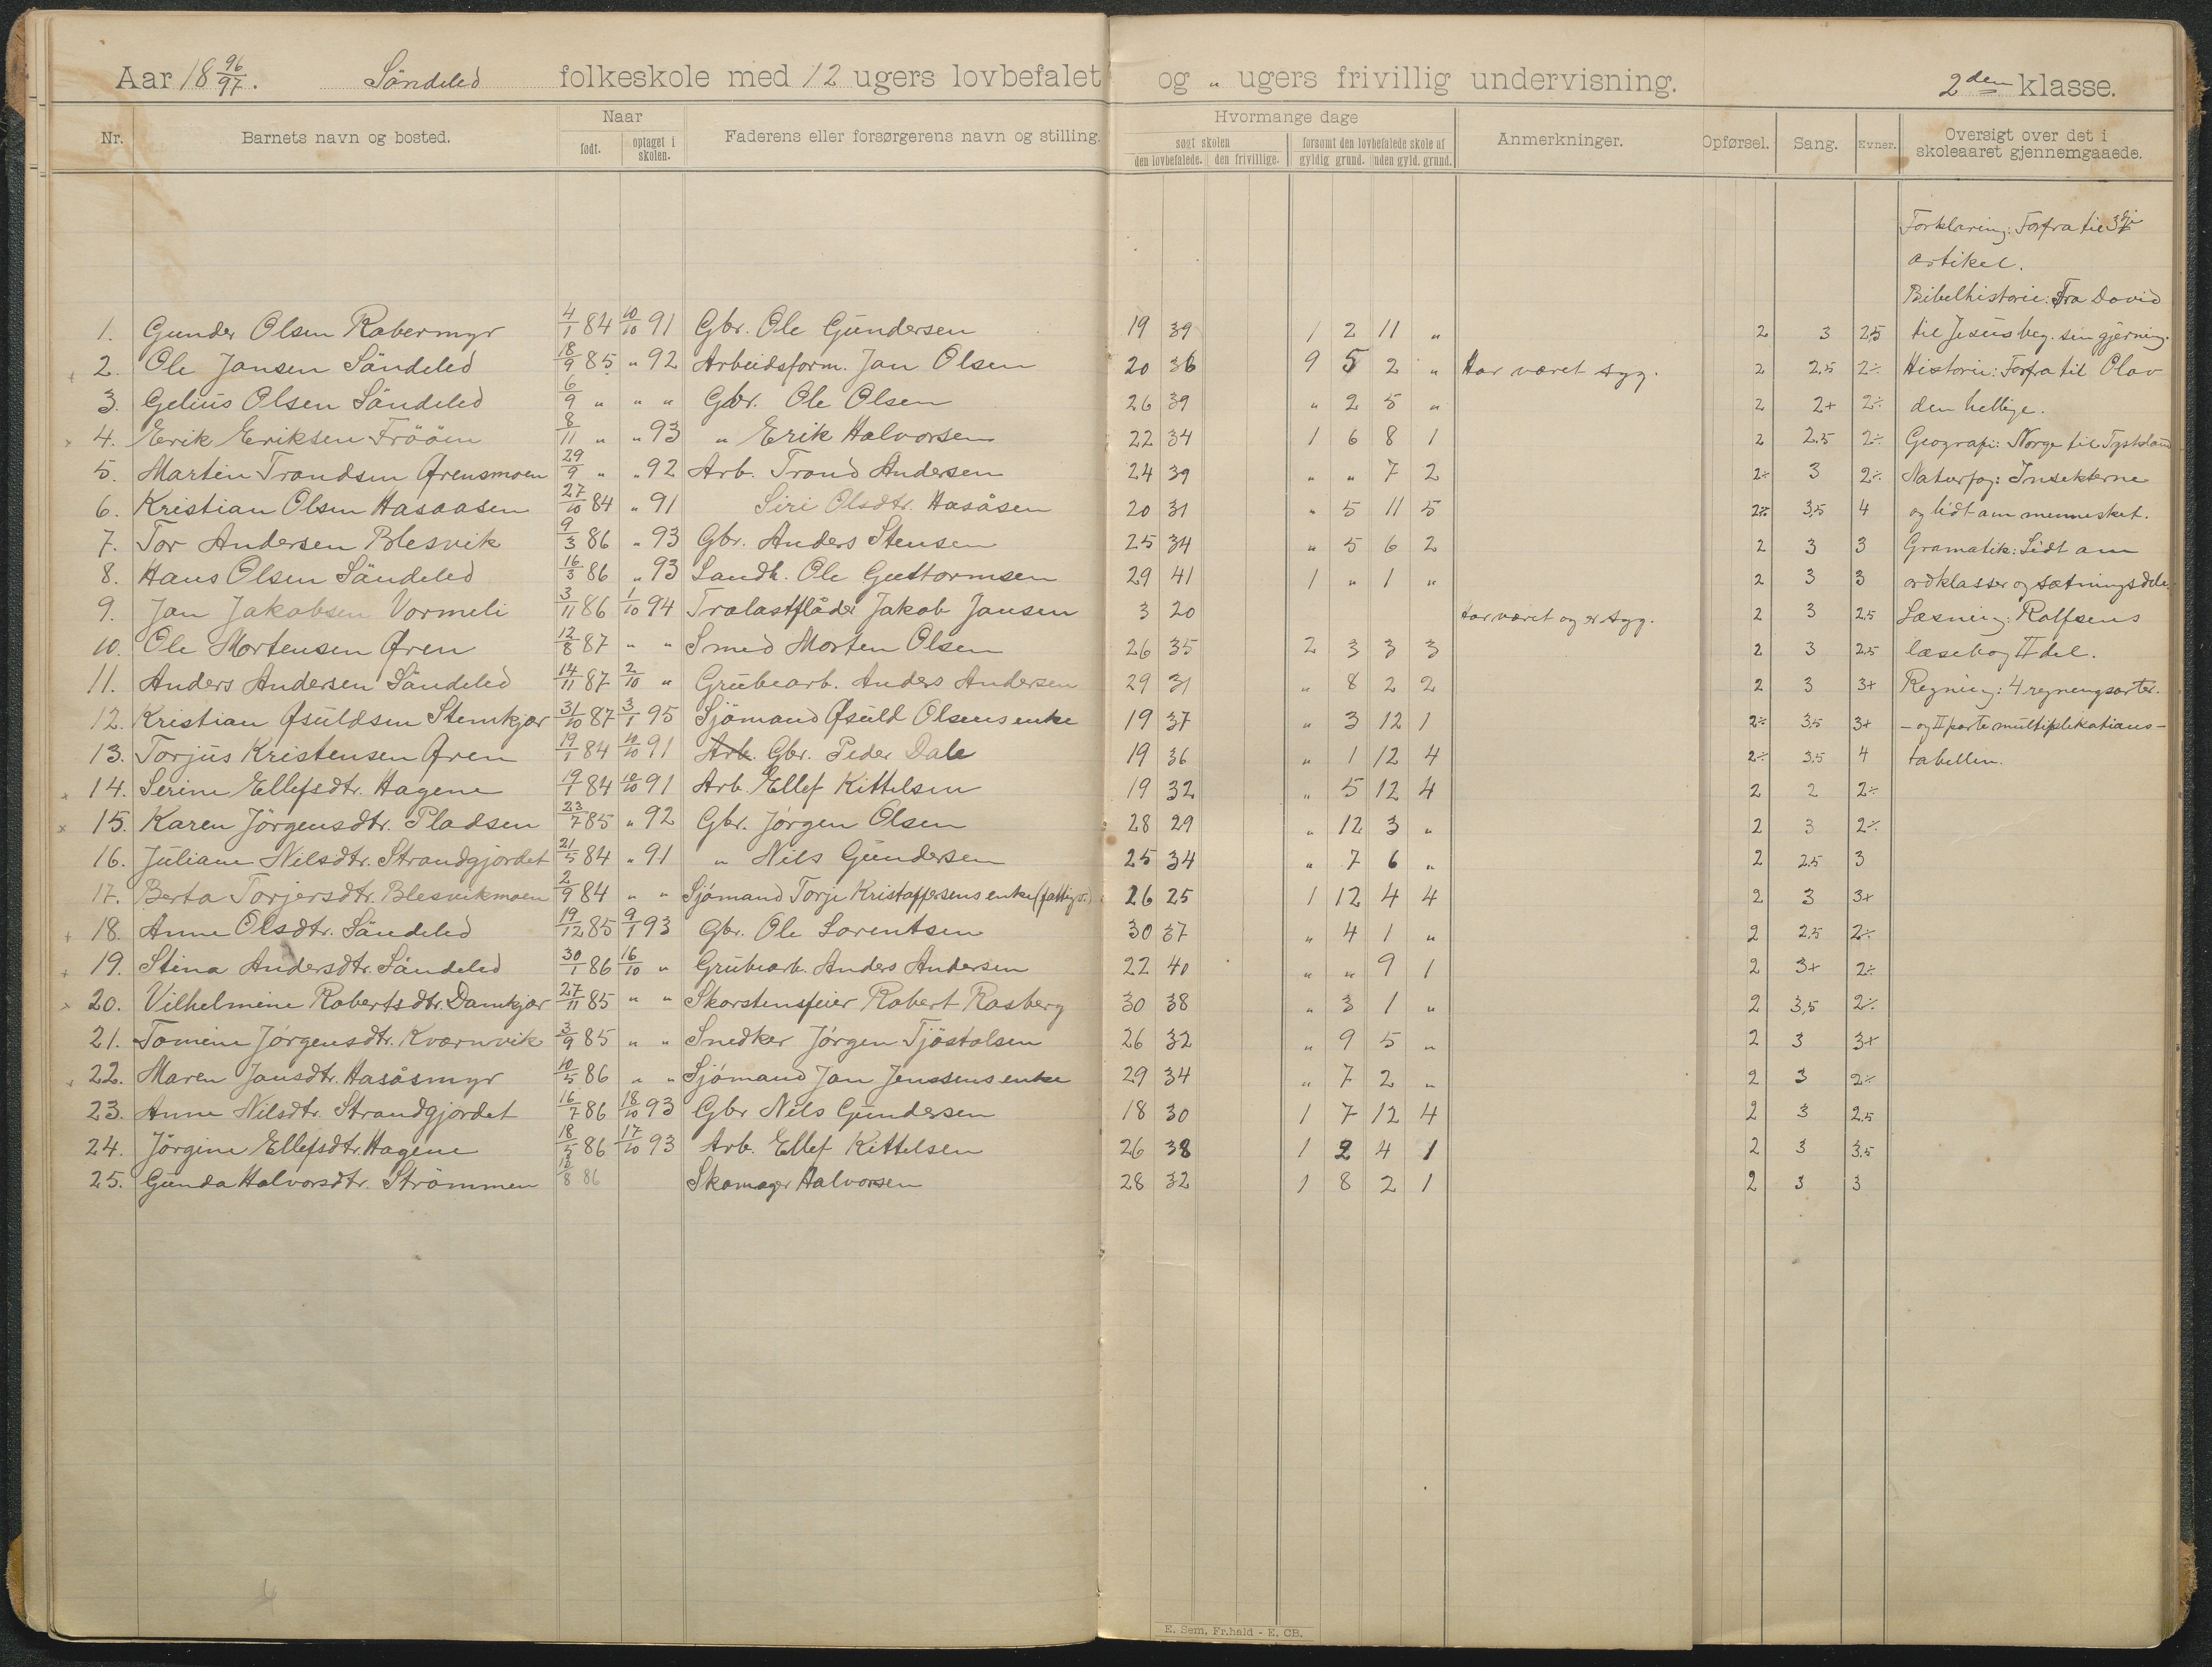 Aar 18 96/97. Søndeled folkeskole med 12 ugers lovbefalet og „ ugers frivillig undervisning. 2den klasse.
Nr. Barnets navn og bosted. Naar født. optaget i skolen. Faderens eller forsørgerens navn og stilling. Hvormange dage søgt skolen den lovbefalede. den frivillige. forsømt den lovbefalede skole af gyldig grund. uden gyld. grund. Anmerkninger. Opførsel. Sang. Evner. Oversigt over det i skoleaaret gjennemgaaede.
Forklaring: Forfra til 3die
artikel.
Bibelhistorie: Fra David
1. Gunder Olsen Rabermyr 4/1 84 10/10 91 Gbr. Ole Gundersen 19 39 1 2 11 „ 2 3 2,5 til Jesus beg. sin gjerning.
2. Ole Jansen Söndeled 18/9 85 „ 92 Arbeidsform. Jan Olsen 20 36 9 5 2 „ Har været syg. 2 2,5 2÷ Historie: Forfra til Olav
3. Gelius Olsen Söndeled 6/9 „ „ „ Gbr. Ole Olsen 26 39 „ 2 5 „ 2 2+ 2÷ den hellige.
4. Erik Eriksen Fröön 8/11 „ „ 93 „ Erik Halvorsen 22 34 1 6 8 1 2 2,5 2÷ Geografi: Norge til Tyskland
5. Martin Trondsen Ørensmoen 29/9 „ „ 92 Arb. Trond Andersen 24 39 „ „ 7 2 2÷ 3 2÷ Naturfag: Insekterne
6. Kristian Olsen Hasaasen 27/10 84 „ 91 Siri Olsdtr. Hasåsen 20 31 „ 5 11 5 2÷ 3,5 4 og lidt om mennesket.
7. Tor Andersen Blesvik 9/3 86 „ 93 Gbr. Anders Stensen 25 34 „ 5 6 2 2 3 3 Gramatik: Lidt om
8. Hans Olsen Söndeled 16/3 86 „ 93 Landh. Ole Guttormsen 29 41 1 „ 1 „ 2 3 3 ordklasser og sætningsdele.
9. Jan Jakobsen Vormeli 3/11 86 1/10 94 Tralastflåder Jakob Jansen 3 20 Har været og er syg. 2 3 2,5 Læsning: Rolfsens
10. Ole Mortensen Øren 12/8 87 „ „ Smed Morten Olsen 26 35 2 3 3 3 2 3 2,5 læsebog II del.
11. Anders Andersen Söndeled 14/11 87 2/10 „ Grubearb. Anders Andersen 29 31 „ 8 2 2 2 3 3+ Regning: 4 regningsarter.
12. Kristian Øsuldsen Stemkjær 31/10 87 3/1 95 Sjömand Øsuld Olsens enke 19 37 „ 3 12 1 2÷ 3,5 3+ – og II parte multiplikations-
13. Torjus Kristensen Øren 19/1 84 10/10 91 Arb. Gbr. Peder Dale 19 36 „ 1 12 4 2÷ 3,5 4 tabellen.
14. Serine Ellefsdtr. Hagene 19/1 84 10/10 91 Arb. Ellef Kittelsen 19 32 „ 5 12 4 2 2 2÷
15. Karen Jörgensdtr. Pladsen 23/7 85 „ 92 Gbr. Jörgen Olsen 28 29 „ 12 3 „ 2 3 2÷
16. Juliane Nilsdtr. Strandgjordet 21/5 84 „ 91 „ Nils Gundersen 25 34 „ 7 6 „ 2 2,5 3
17. Berta Torjersdtr. Blesvikmoen 2/9 84 „ „ Sjömand Torje Kristoffersens enke (fattigv.) 26 25 1 12 4 4 2 3 3+
18. Anne Olsdtr. Söndeled 19/12 85 9/1 93 Gbr. Ole Lorentsen 30 37 „ 4 1 „ 2 2,5 2÷
19. Stina Andersdtr. Söndeled 30/1 86 16/10 „ Grubearb. Anders Andersen 22 40 „ „ 9 1 2 3+ 2÷
20. Vilhelmine Robertsdtr. Damkjær 27/11 85 „ „ Skorstensfeier Robert Rosberg 30 38 „ 3 1 „ 2 3,5 2÷
21. Tomine Jörgensdtr. Kværnvik 3/9 85 „ „ Snedker Jörgen Tjöstolsen 26 32 „ 9 5 „ 2 3 3+
22. Maren Jansdtr. Hasåsmyr 10/5 86 „ „ Sjömand Jan Jenssens enke 29 34 „ 7 2 „ 2 3 2÷
23. Anne Nilsdtr. Strandgjordet 16/7 86 18/10 93 Gbr Nils Gundersen 18 30 1 7 12 4 2 3 2,5
24. Jörgine Ellefsdtr. Hagene 18/5 86 17/10 93 Arb. Ellef Kittelsen 26 38 1 2 4 1 2 3 3,5
25. Gunda Halvorsdtr. Strömmen 8 86 Skomager Halvorsen 28 32 1 8 2 1 2 3 3
E. Sem, Fr.hald - E. CB.